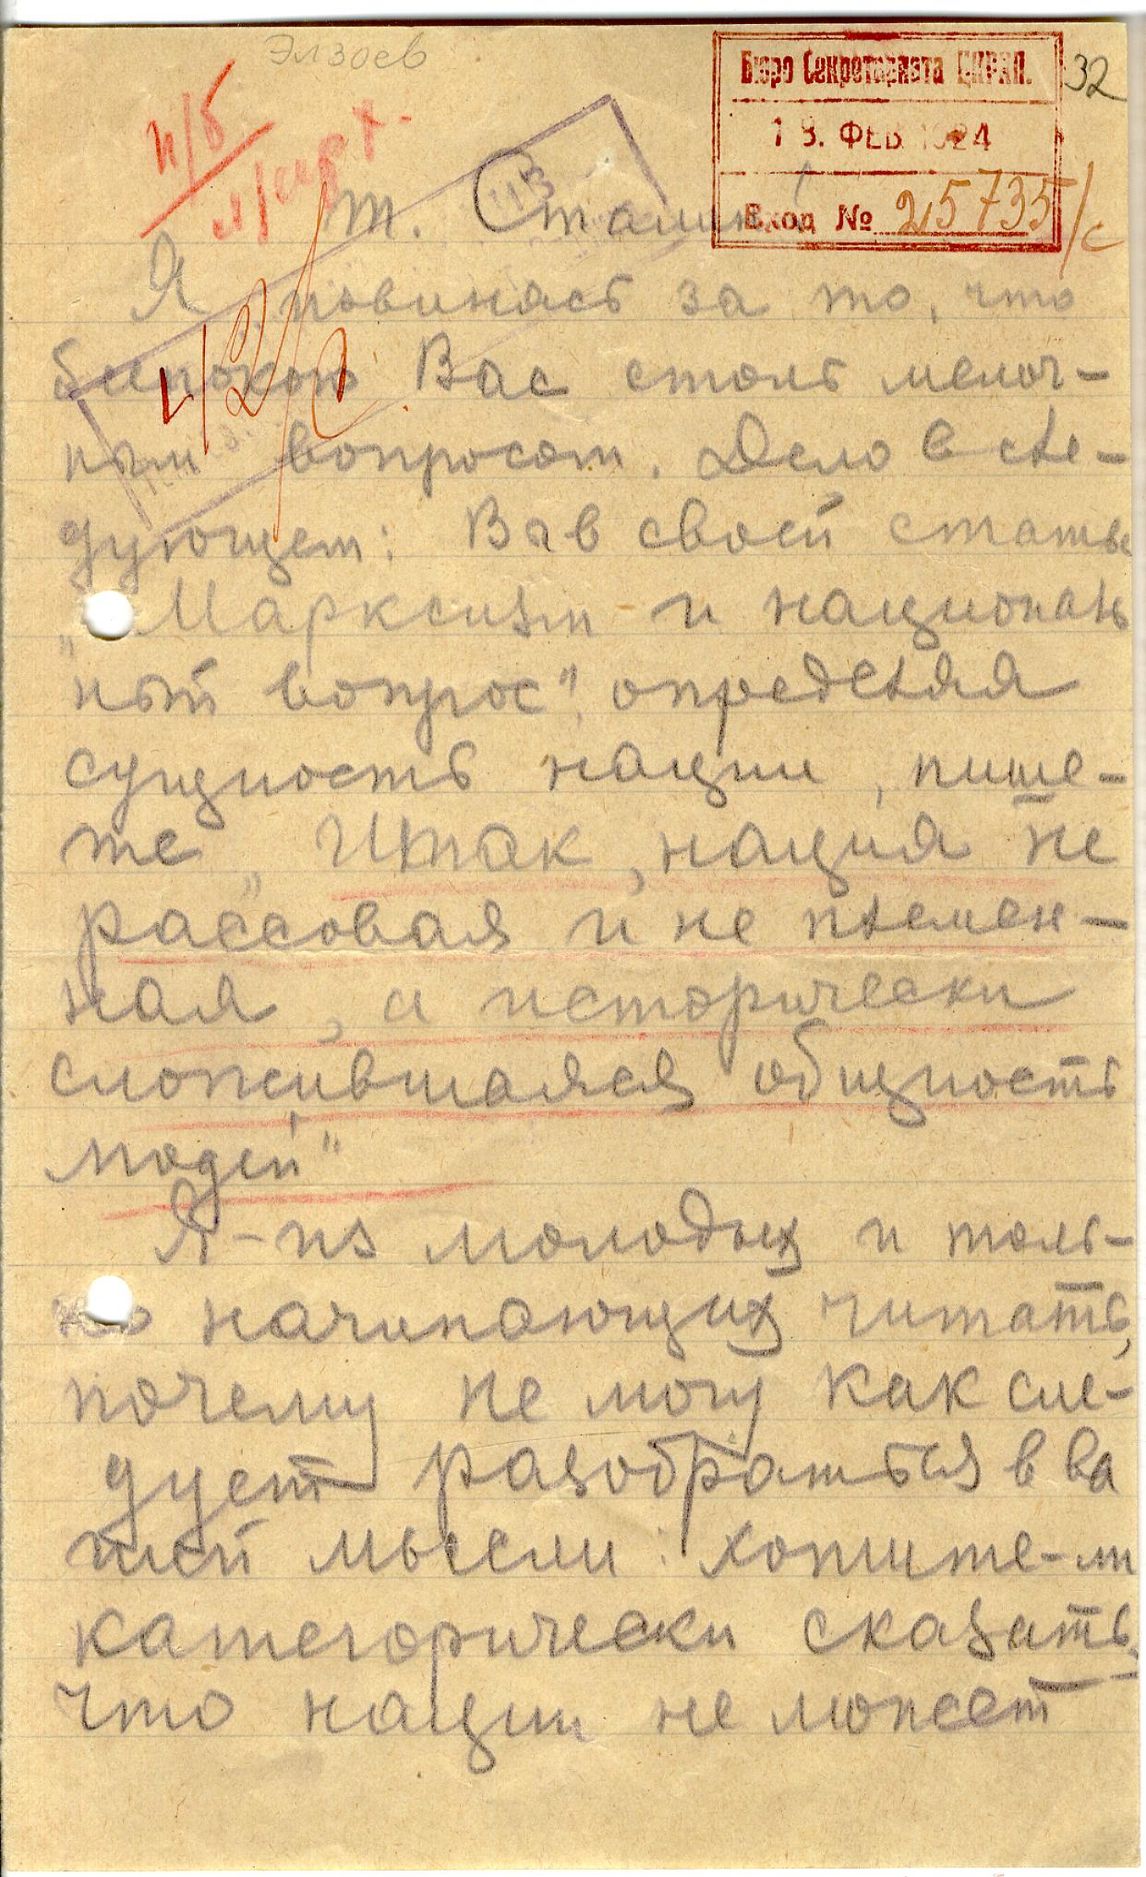 Элзоев
32
Бюро Секретариата ЦКРКП.
18. ФЕВ 1924
Вход № 25735/с
п/б
т. Сталин!
Я повинясь за то, что
беспокою Вас столь мелоч-
ным вопросом. Дело в сле-
дующем: Вы в своей статье
„Марксизм и националь
ный вопрос", определяя
сущность нации, пише-
те „Итак, нация не
рассовая и не племен-
ная, а исторически
сложившаяся общность
людей"
Я-из молодых и толь-
ко начинающих читать,
почему не могу как сле-
дует разобраться в ва
шей мысли: хотите-ли
категорически сказать,
что нации не может